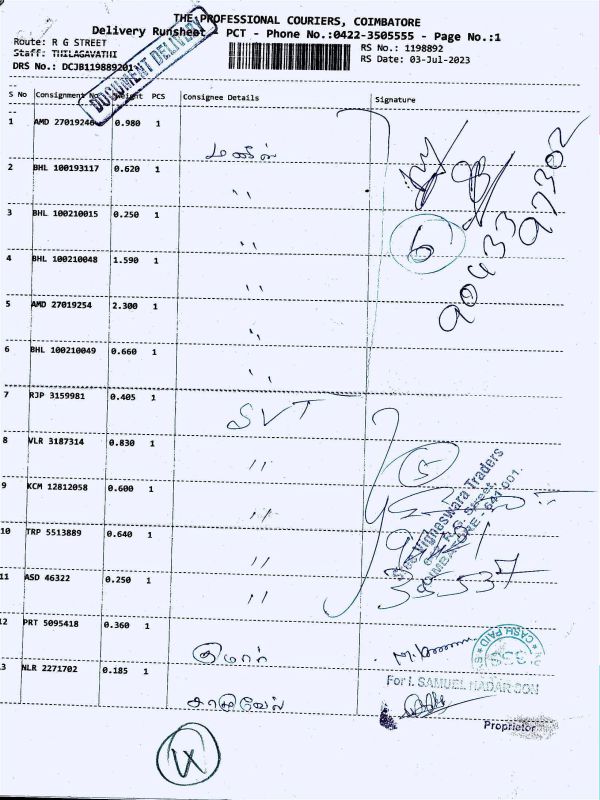 THE PROFESSIONAL COURIERS, COIMBATORE
Delivery Runsheet PCT - Phone No.:0422-3505555 - Page No.:1
Route: R G STREET RS No.: 1198892
Staff: THILAGAVATHI RS Date: 03-Jul-2023
DRS No.: DCJB119889201
DOCUMENT DELIVERY
S No Consignment No Weight PCS Consignee Details Signature
1 AMD 27019246 0.980 1
2 BHL 100193117 0.620 1 ''
3 BHL 100210015 0.250 1 ''
6
4 BHL 100210048 1.590 1 ''
90433 97302
5 AMD 27019254 2.300 1 ''
6 BHL 100210049 0.660 1 ''
7 RJP 3159981 0.405 1 SVT
8 VLR 3187314 0.830 1 ''
5
9 KCM 12812058 0.600 1 ''
10 TRP 5513889 0.640 1 ''
Traders
R.G. Street
COIMBATORE - 641 001.
11 ASD 46322 0.250 1 ''
38537
12 PRT 5095418 0.360 1 குமார்
CASH PAID
13 NLR 2271702 0.185 1 சாமுவேல்
For I. SAMUEL NADAR SON
Proprietor